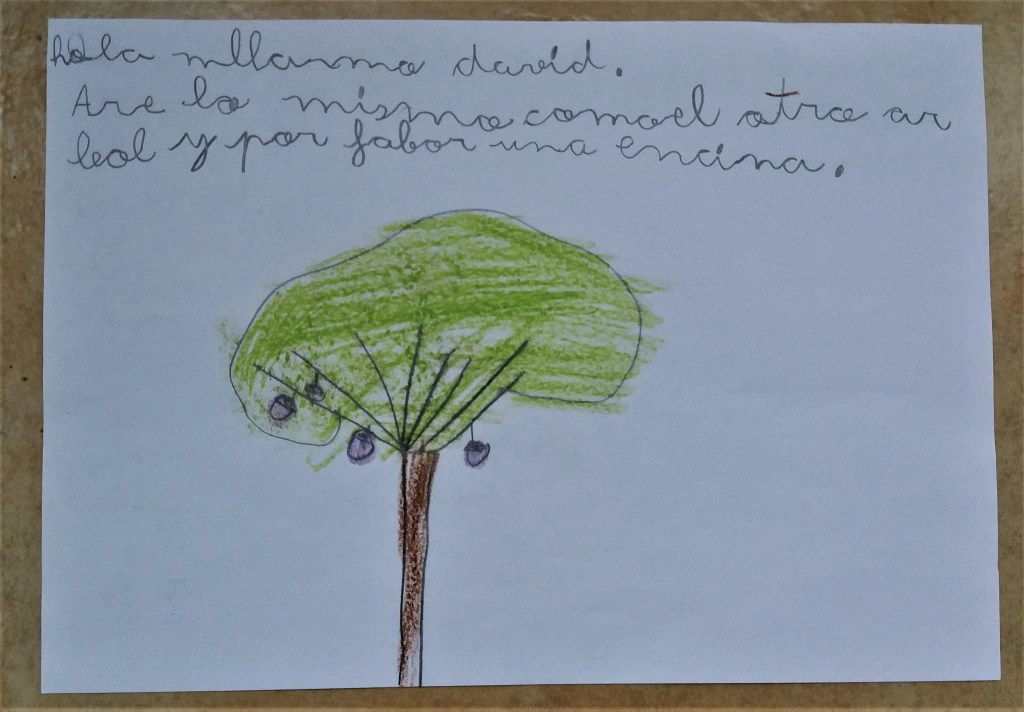 hola mllamo david.
Are lo mismo comoel otro ar
bol y por fabor una encina.